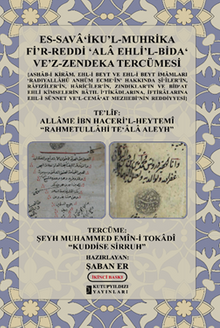 ES-SAVÂ'İKU'L-MUHRİKA
Fİ'R-REDDİ 'ALÂ EHLİ'L-BİDA'
VE'Z-ZENDEKA TERCÜMESİ
(ASHÂB-İ KİRÂM, EHL-İ BEYT VE EHL-İ BEYT İMÂMLARI
"RADIYALLÂHÜ ANHÜM ECME'İN" HAKKINDA Şİ'İLER'İN,
RÂFİZİLER'İN, HÂRİCİLER'İN, ZINDIKLAR'IN VE BİD'AT
EHLİ KİMSELERİN BÂTIL İ'TİKÂDLARINA, İFTİRÂLARINA
EHL-İ SÜNNET VE'L-CEMÂ'AT MEZHEBİ'NİN REDDİYYESİ)
TE'LİF:
ALLÂME İBN HACERİ'L-HEYTEMİ
"RAHMETULLÂHİ TE'ÂLÂ ALEYH"
TERCÜME:
ŞEYH MUHAMMED EMİN-İ TOKÂDİ
"KUDDİSE SİRRUH"
HAZIRLAYAN:
ŞABAN ER
İKİNCİ BASKI
KUTUPYILDIZI
YAYINLARI